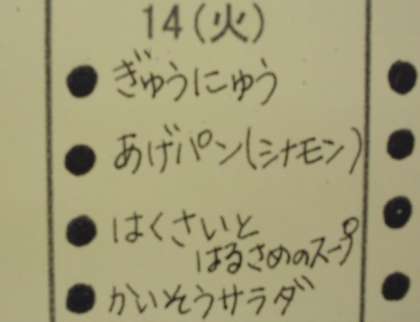 14(火)
ぎゅうにゅう
あげパン(シナモン)
はくさいと
はるさめのスープ
かいそうサラダ